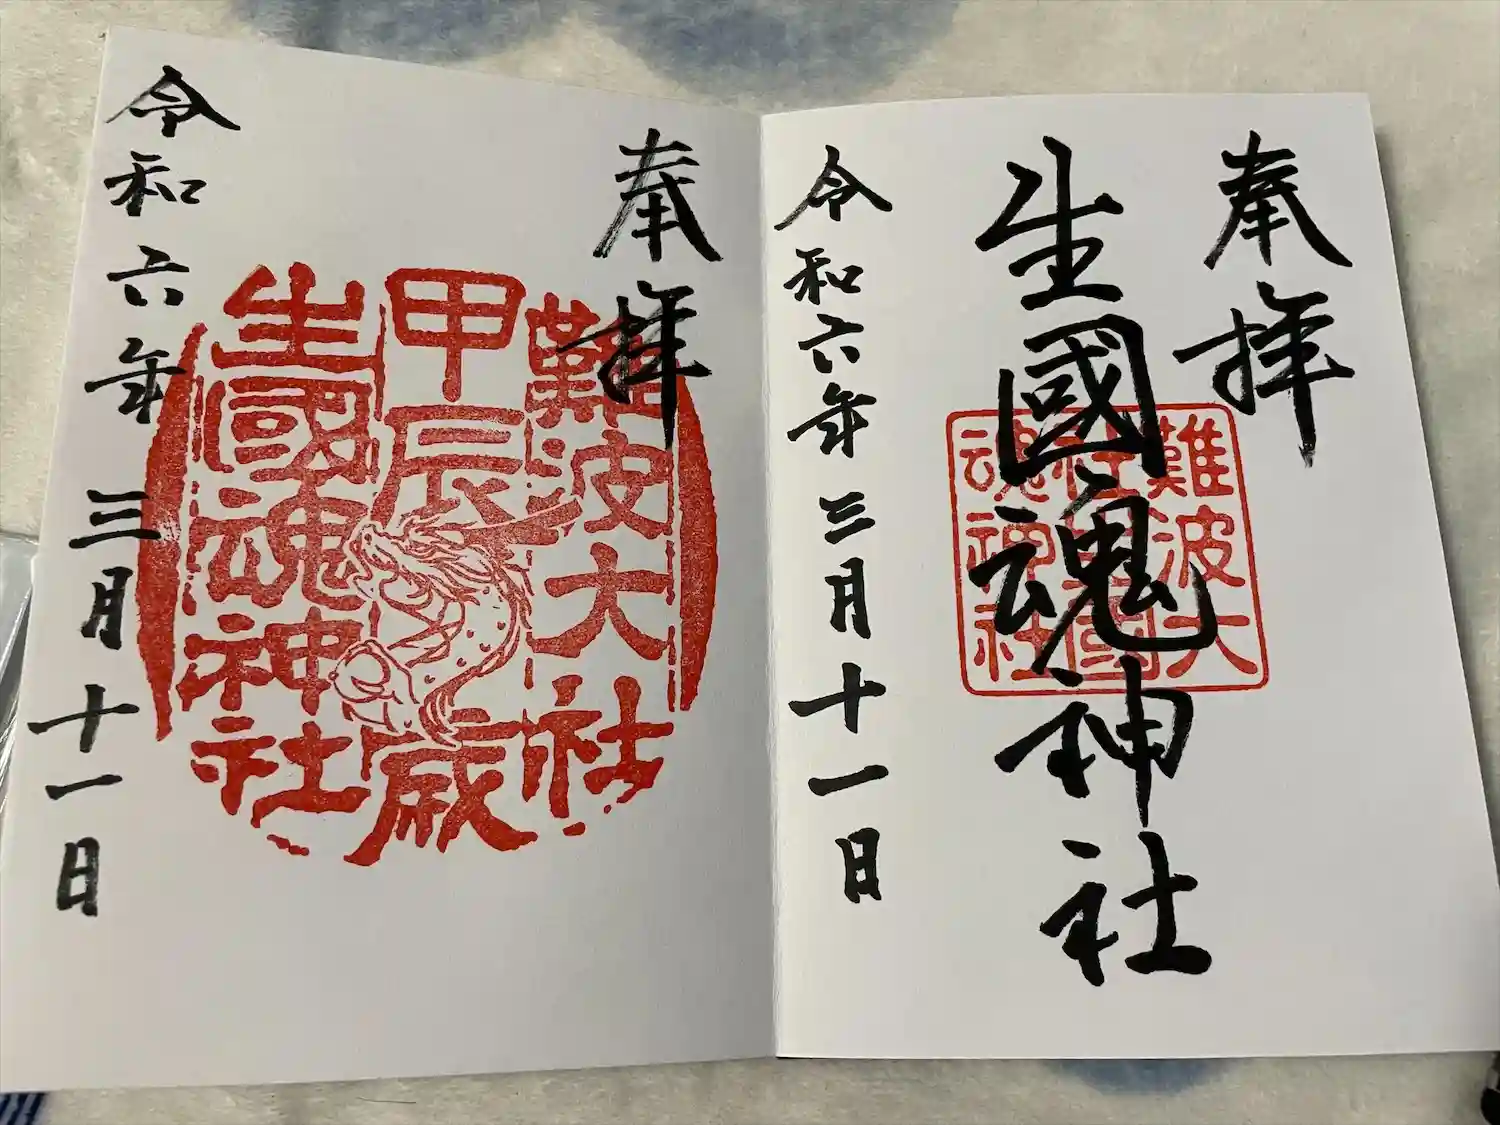 奉拝
生國魂神社
難波大
社生國
魂神社
令和六年三月十一日
奉拝
難波大社
甲辰歳
生國魂神社
令和六年三月十一日